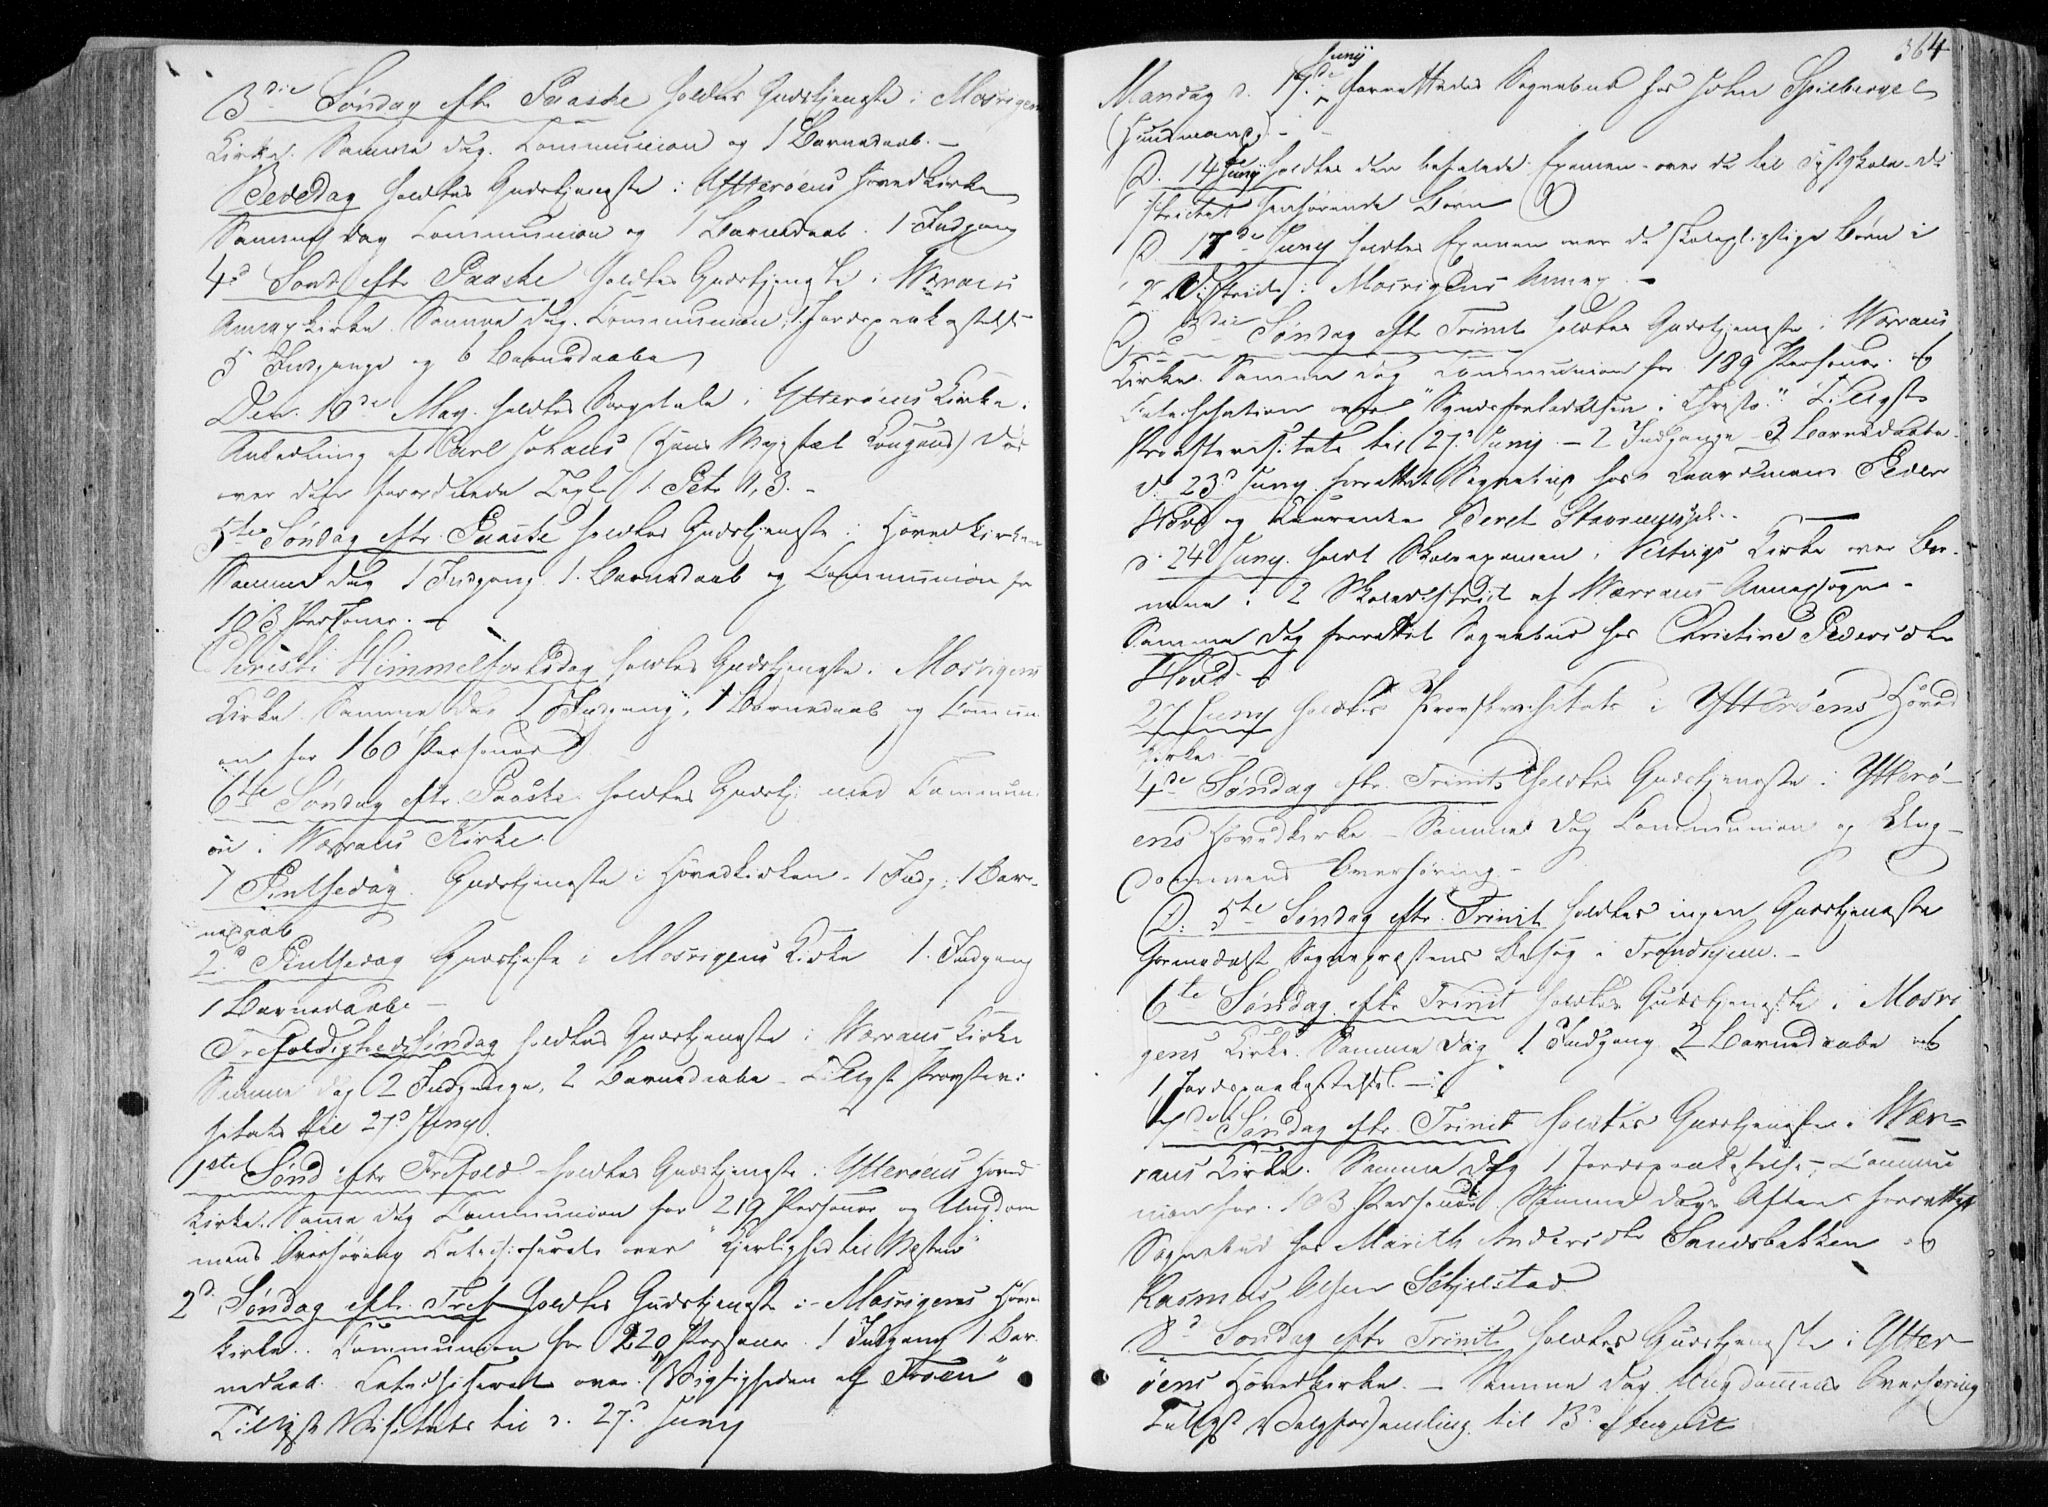 3die Søndag eftr Paaske holdtes Gudstjeneste i Mosvigens
Kirke. Samme Dag Communion og 1 Barnedaab. –
Bededag holdtes Gudstjeneste i Ytterøens Hovedkirke
Samme Dag Communion og 1 Barnedaab. 1 Indgang
4d Sønd eftr Paaske holdtes Gudstjeneste i Værrans
Annex Kirke. Samme Dag Communion, 1 Jordspaakastelse
5 Indgange og 6 Barnedaabe
Den 10de May holdtes Sørgetale i Ytterøens Kirke i
Anledning af Carl Johans (Hans Majestæt Kongens) Død
over den forordnede Text 1 Petr 1,3. –
5te Søndag eftr Paaske holdtes Gudstjeneste i Hovedkirken
Samme Dag 1 Indgang 1 Barnedaab og Communion for
103 Personer. –
Christi Himmelfartsdag holdtes Gudstjeneste i Mosvigens
Kirke Samme Dag 1 Indgang, 1 Barnedaab og Commun
on for 160 Personer
6te Søndag eftr Paaske holdtes Gudstj: med Commun
on i Værrans Kirke.
1 Pintsedag. Gudstjeneste i Hovedkirken – 1 Indg: 1 Bar-
nedaab
2d Pintsedag Gudstjeneste i Mosvigens Kirke 1. Indgang
1 Barnedaabe –
Trefoldighedssøndag holdtes Gudstjeneste i Værrans Kirke
Samme Dag 2 Indgange, 2 Barnedaabe – Tillyst Provstevi:
sitats til 27d Juny.
1ste Sønd eftr Trefold – holdtes Gudstjeneste i Ytterøens Hoved
Kirke. Samme Dag Communion for 219 Personer og Ungdom
mens Overhøring Catechiserede over "Kjerlighed til Næsten"
2d Søndag eftr. Tref holdtes Gudstjeneste i Mosvigens
Kirke. Communion for 220 Personer. 1 Indgang 1 Bar
nedaab. Catechiseret over "Vigtigheden af Troen"
Tillyst Visitats til d. 27d Juny
364
Juny
Mandag d. 17de forrettedes Sognebud hos John Spilberget
(Huusmand) –
D. 14de Juny holdtes den befalede Examen over de til Fastskole-Di
strictet henhørende Børn
D. 17de Juny holdtes Examen over de skolepligtige Børn i
2 Districter i Mosvigens Annex –
D. 3die Søndag eftr Trinit holdtes Gudstjeneste i Værrans
Kirke. Samme Dag Communion for 189 Personer. og
Catechisation over "Syndsforladelsen i Christo." Tillyst
Provstevisitats til 27d Juny. – 2 Indgange – 3 Barnedaabe
d. 23d Juny forrettet Sognebud hos Gaardmand Peder
Hovd og Beret
d. 24d Juny holdt Skoleexamen i Vestvigs Kirke over Bør
nene i 2 Skoledistrict af Værrans Annexsogn –
Samme Dag forrettet Sognebud hos Christine Pedersdtr
Hovd –
27 Juny holdtes Provstevisitats i Ytterøens Hoved
kirke. –
4de Søndag eftr. Trinit: holdtes Gudstjeneste i Ytterø-
ens Hovedkirke – Samme Dag Communion og Ung-
dommens Overhøring –
D. 5te Søndag eftr. Trinit holdtes ingen Gudstjeneste
formedelst Sognepræstens Besøg i Trondhjem. –
6te Søndag eftr Trinit holdtes Gudstjeneste i Mosvi
gens Kirke. Samme Dag 1 Indgang 2 Barnedaabe og
1 Jordspaakastelse. –
7de Søndag eftr Trinit holdtes Gudstjeneste i Vær-
rans Kirke. Samme Dag 1 Jordspaakastelse, – Commu
nion for 103 Personer. Samme Dags Aften forrettet
Sognebud hos Marith Andersdtr Sandsbakken og
Rasmus Olsen Skjelstad.
8d Søndag eftr Trinit: holdtes Gudstjeneste i Ytter
øens Hovedkirke. – Samme Dag Ungdommens Overhøring
Tillyst Valgforsamling til 13d August